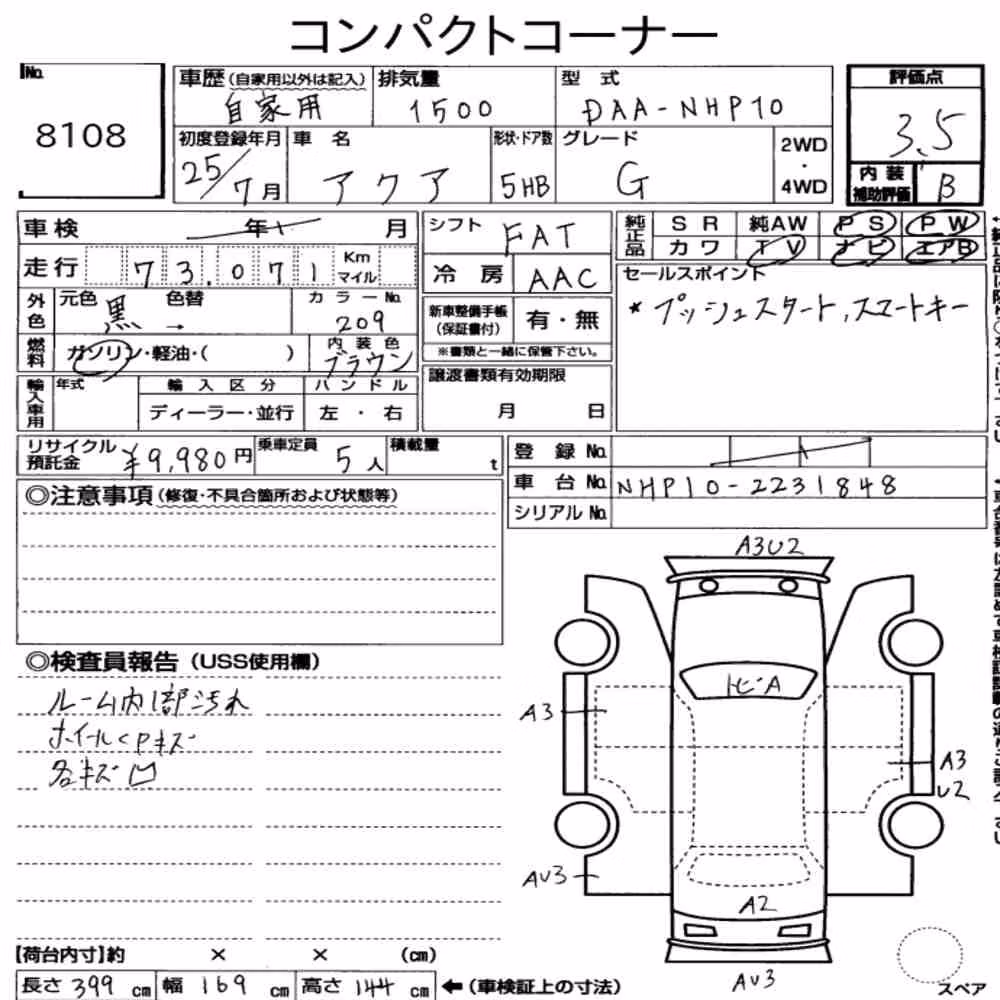 コンパクトコーナー
No. 8108
車歴(自家用以外は記入) 自家用
排気量 1500
型式 DAA-NHP10
評価点 3.5
初度登録年月 25/7月
車名 アクア
形状・ドア数 5HB
グレード G
2WD・4WD
内装補助評価 B
車検 年 月
シフト FAT
純正品 SR 純AW PS PW
カワ TV ナビ エアB
走行 73,071 Km マイル
冷房 AAC
セールスポイント
* プッシュスタート,スマートキー
外色 元色 黒 → 色替
カラーNo. 209
新車整備手帳(保証書付) 有・無
※書類と一緒に保管下さい。
燃料 ガソリン・軽油・( )
内装色 ブラウン
輸入車用 年式 輸入区分 ハンドル
ディーラー・並行 左・右
譲渡書類有効期限
月 日
リサイクル預託金 ¥9,980円
乗車定員 5人
積載量 t
登録No.
車台No. NHP10-2231848
シリアルNo.
◎注意事項(修復・不具合箇所および状態等)
◎検査員報告(USS使用欄)
ルーム内1部汚れ
ホイールCPキズ
各キズ凹
A3U2
トビA
A3
A3
U2
AU3
A2
AU3
【荷台内寸】約 × × (cm)
長さ 399 cm 幅 169 cm 高さ 144 cm ←(車検証上の寸法)
スペア